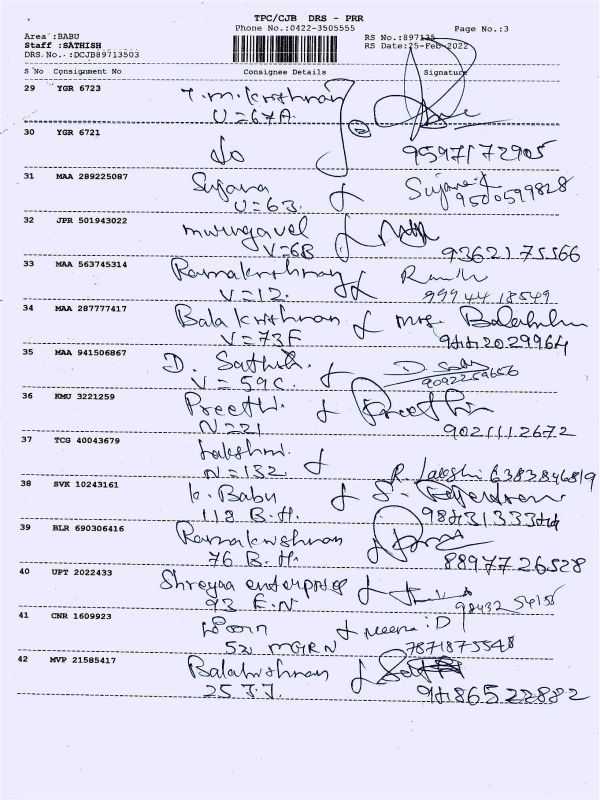 TPC/CJB DRS - PRR
Phone No.:0422-3505555
Page No.:3
Area :BABU
RS No.:897135
Staff :SATHISH
RS Date:25-Feb-2022
DRS.No.:DCJB89713503
S No Consignment No Consignee Details Signature
29 YGR 6723 T.M.Krithnan
U=67A.
30 YGR 6721 Do 9597172905
31 MAA 289225087 Sujana Sujana
U=63. 9500599828
32 JPR 501943022 murugavel
V=6B 9362175566
33 MAA 563745314 Ramakrithnan
V=12. 9994418549
34 MAA 287777417 Balakrithnan mrs.
V=73F
35 MAA 941506867 D. Sathish.
V=59C.
36 KMU 3221259 Preethi. Preethi
N=221 9021112672
37 TCG 40043679 Lakshmi.
N=152 6383846819
38 SVK 10243161 K. Babu
118 B.H.
39 BLR 690306416 Ramakrishnan
76 B.H. 8897726528
40 UPT 2022433 Shreyaa enterprises
93 E.N
41 CNR 1609923 meena:D
52 MGRN 7871875548
42 MVP 21585417 Balakrishnan
25 J.J.